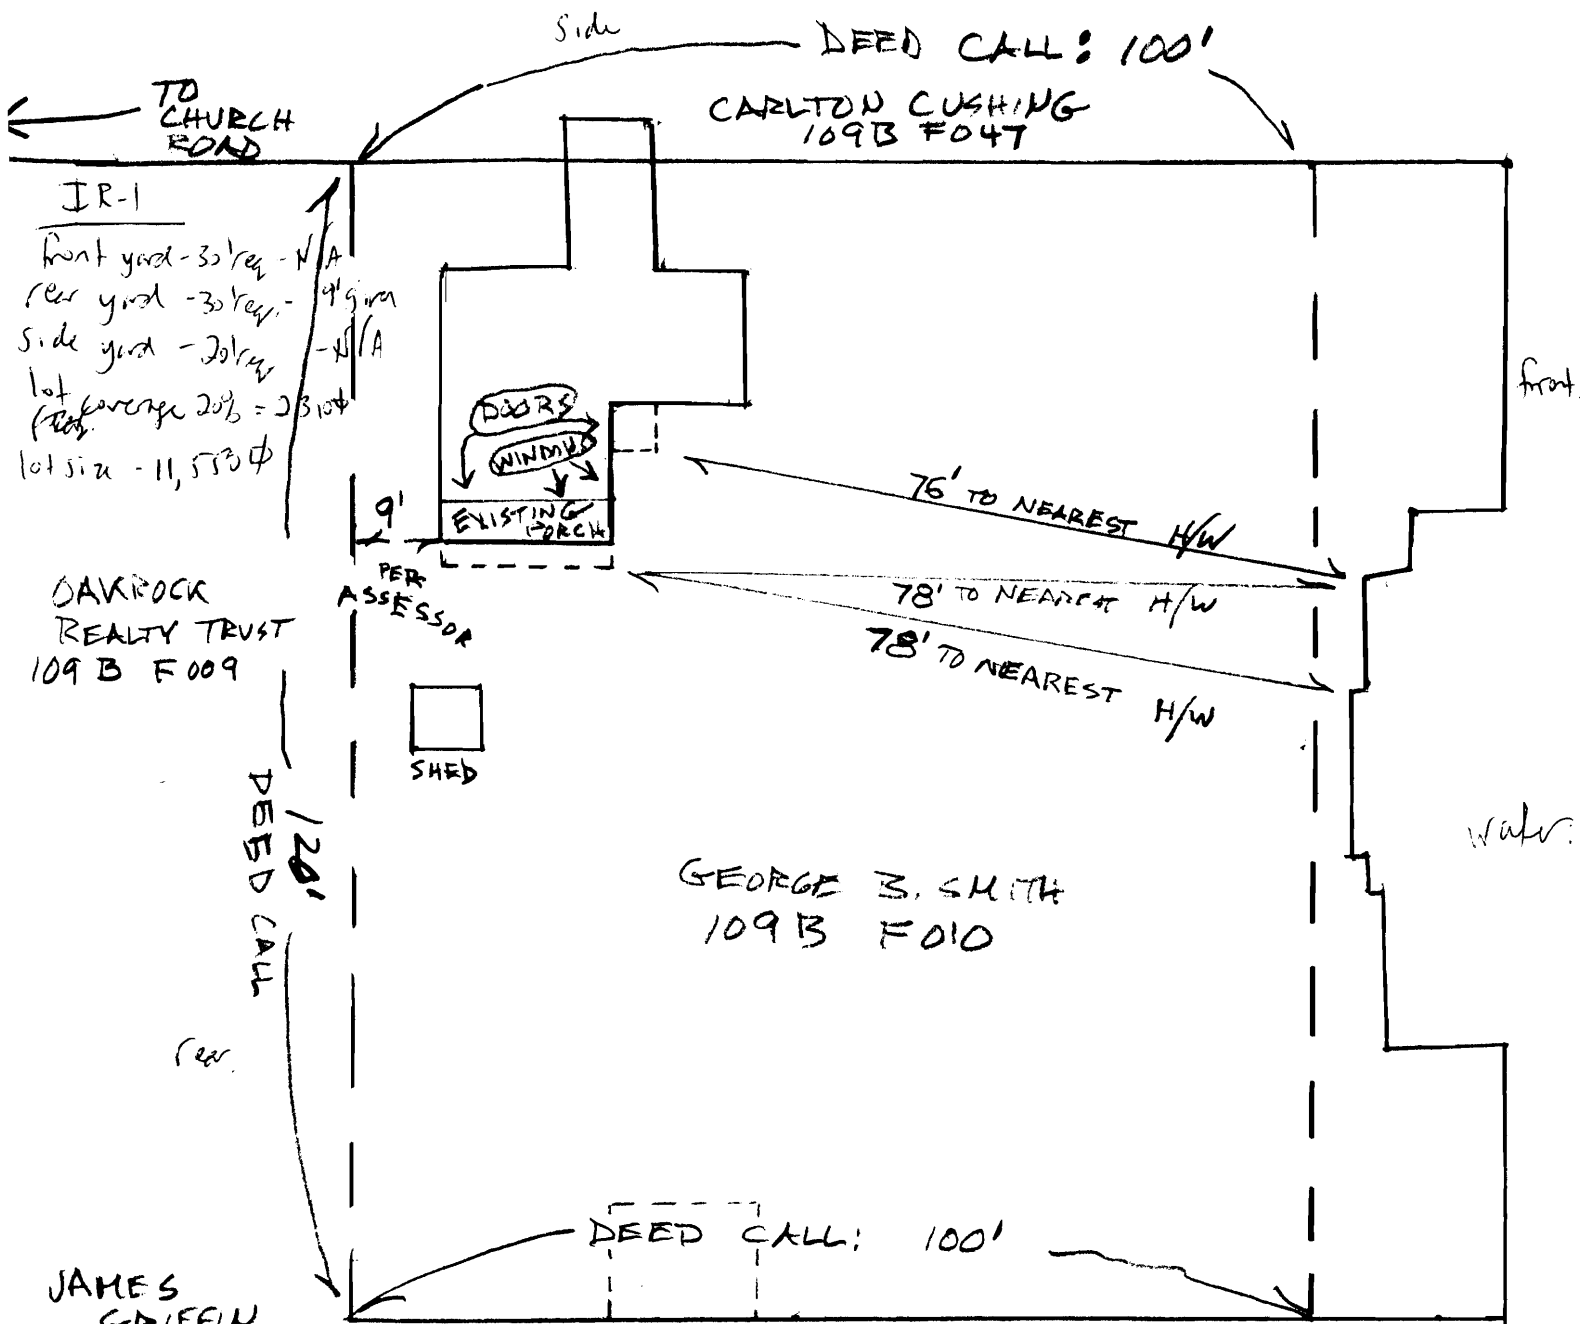 side
DEED CALL: 100'
TO
CHURCH
ROAD
CARLTON CUSHING
109B F047
IR-1
front yard - 30' req - N/A
rear yard - 30' req. - 9' given
side yard - 20' req - N/A
lot
coverage 20% = 2310 ⌀
lot size - 11,553 ⌀
front.
DOORS
WINDOWS
EXISTING
PORCH
9'
PER
ASSESSOR
76' TO NEAREST H/W
78' TO NEAREST H/W
78' TO NEAREST H/W
OAKROCK
REALTY TRUST
109 B F 009
SHED
120'
DEED CALL
water.
GEORGE B. SMITH
109B F010
rear.
DEED CALL: 100'
JAMES
GRIFFIN